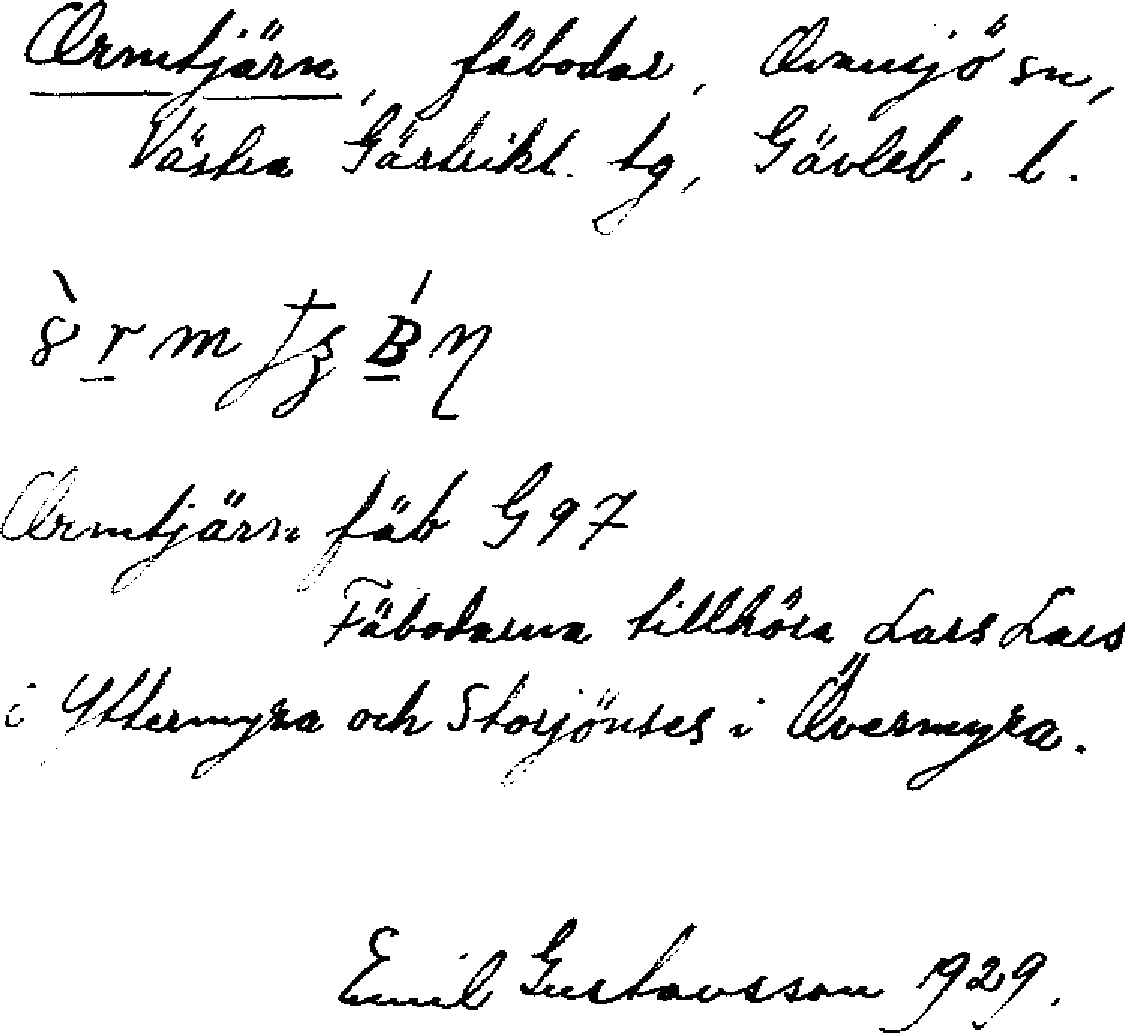 Ormtjärn, fäbodar, Ovansjö sn,
Västra Gästrikl. tg, Gävleb. l.
Ormtjärn fäb G97
Fäbodarna tillhöra Lars Lars
i Yttermyra och Storjönses i Övermyra.
Emil Gustavsson 1929.